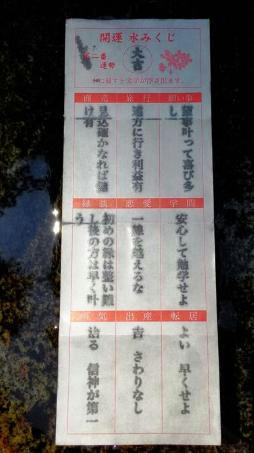 開運 水みくじ
第二番
運勢
大吉
水に浸すと文字が浮き出ます。
願い事
望事叶って喜び多
し
旅行
遠方に行き利益有
商売
見込確かなれば儲
け有
学問
安心して勉学せよ
恋愛
一線を越えるな
縁談
初めの縁は整い難
し後の方は早く叶
う
転居
よい 早くせよ
出産
吉 さわりなし
病気
治る 信神が第一